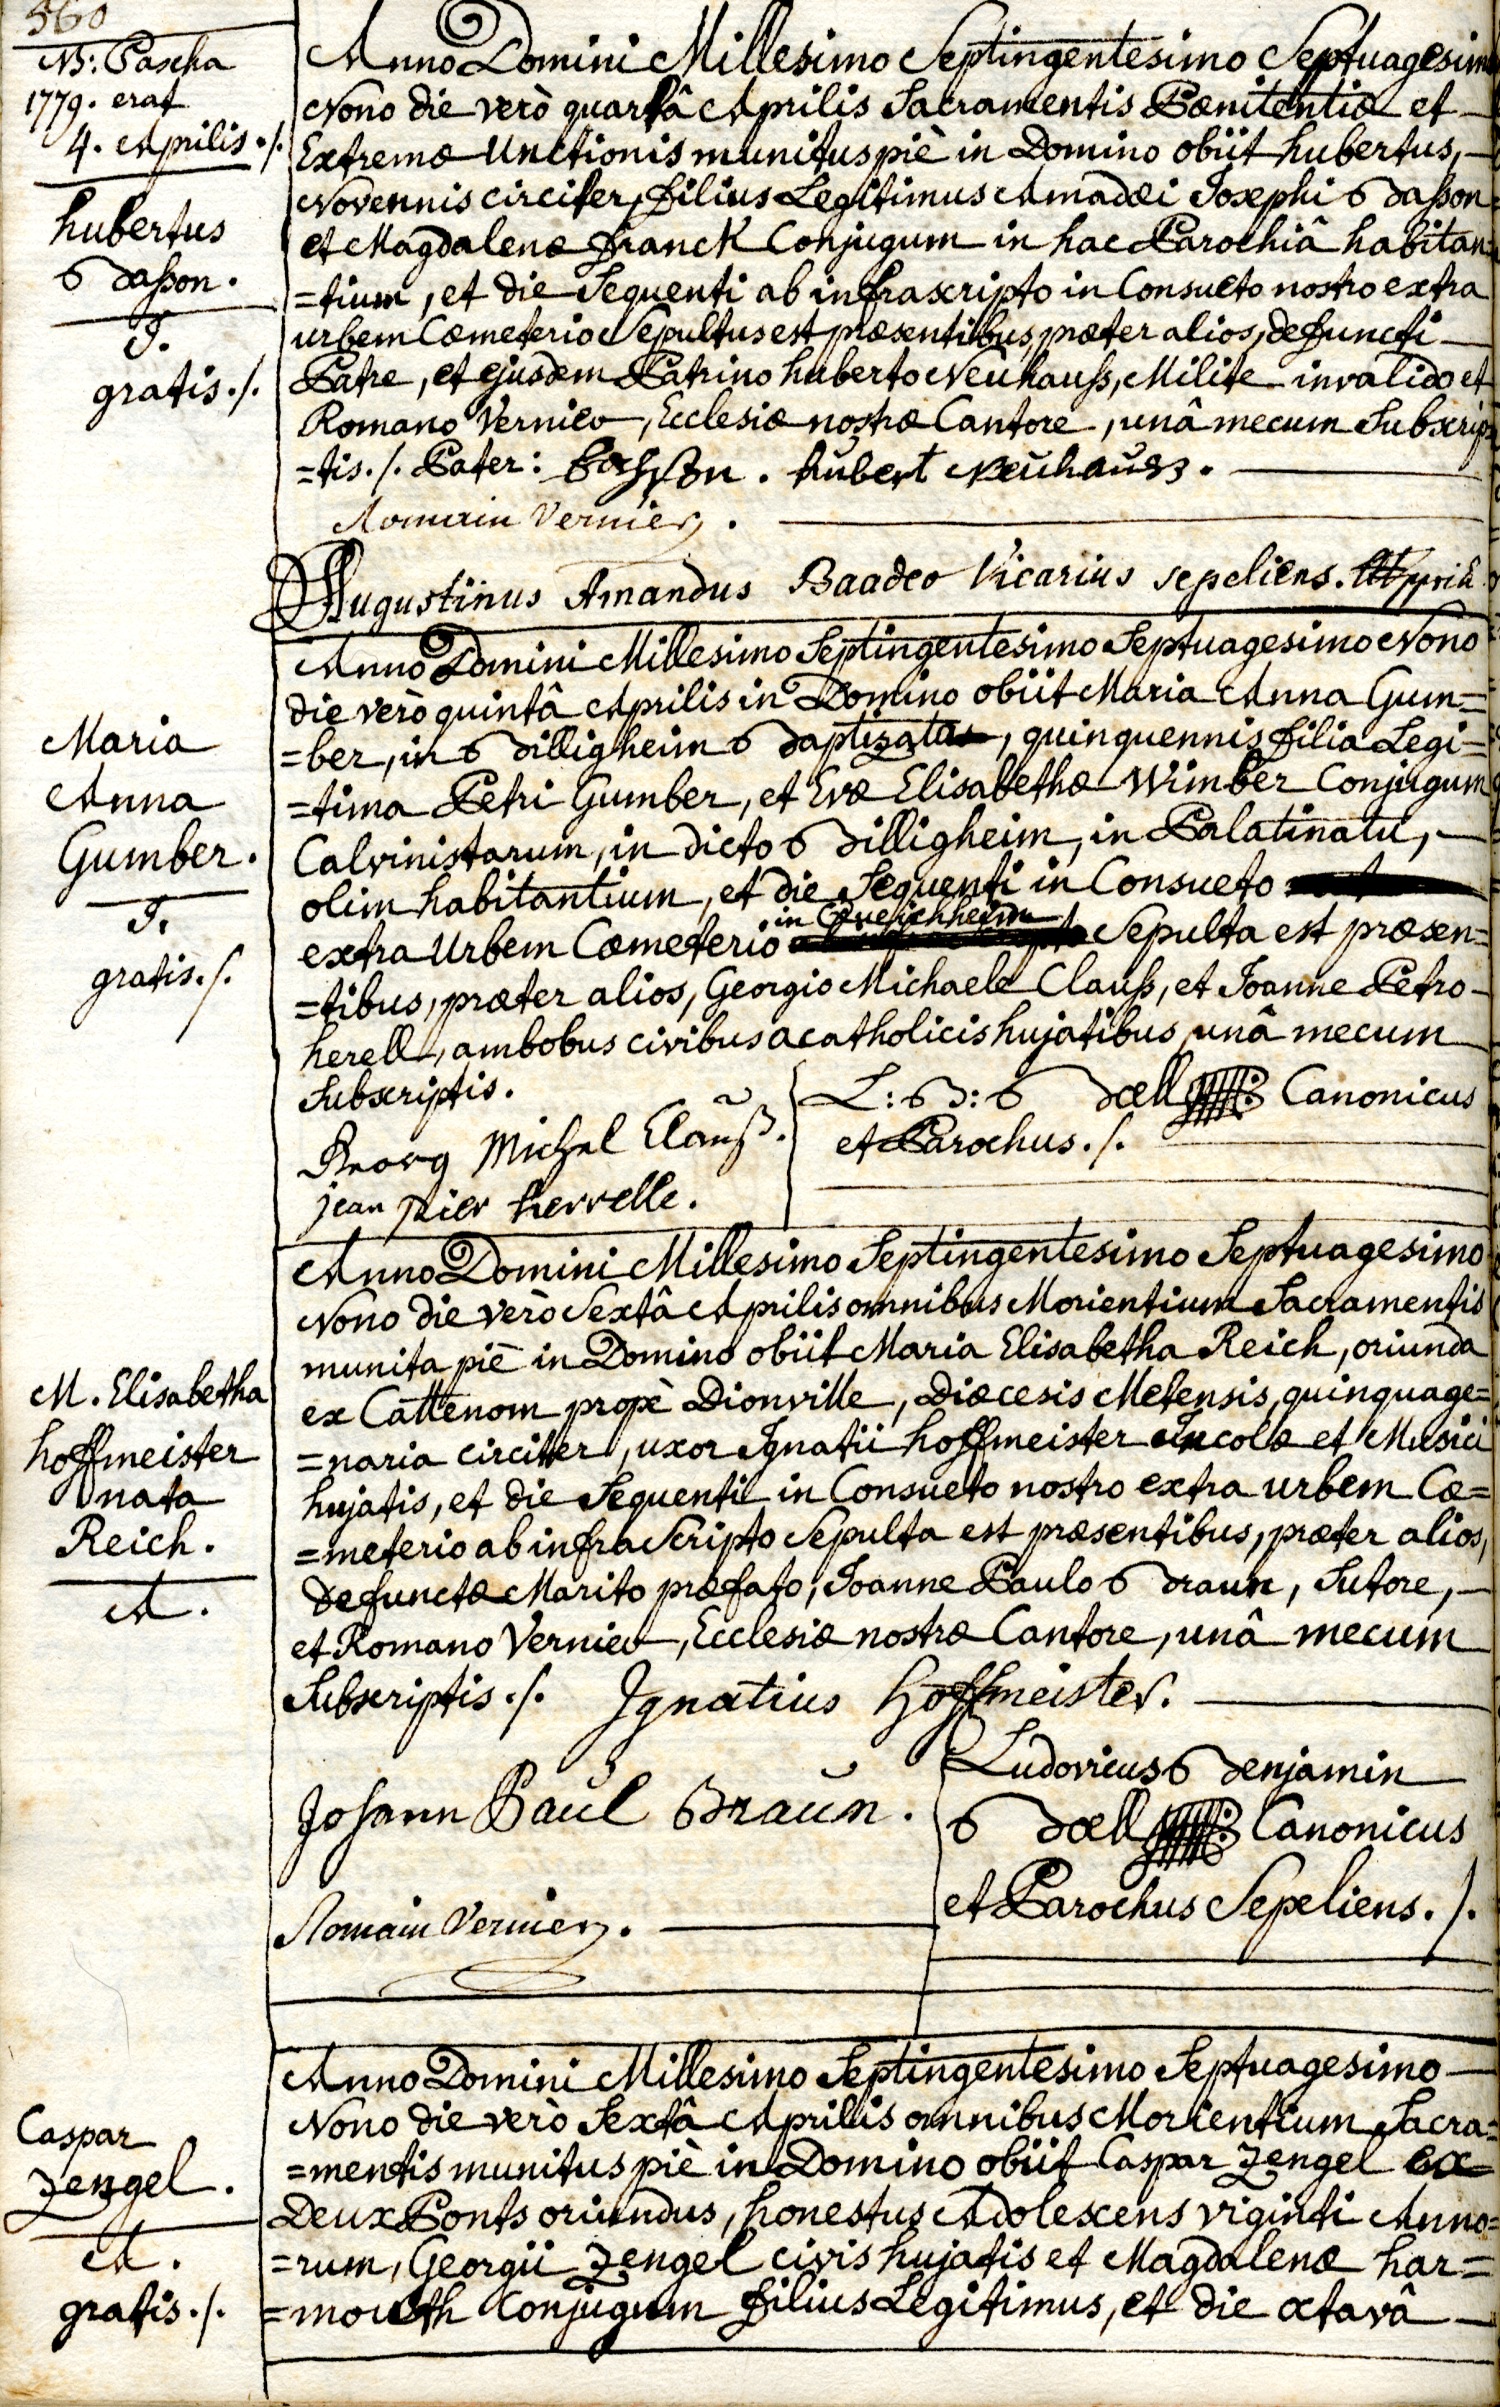 560
NB: Pascha
1779. erat
4. Aprilis ./.
hubertus
Basson.
J.
gratis ./.
Anno Domini Millesimo Septingentesimo Septuagesimo
Nono die verò quartâ Aprilis Sacramentis Pœnitentiæ et
Extremæ Unctionis munitus piè in Domino obiit hubertus,
Novennis circiter, filius Legitimus Amadæi Josephi Basson
et Magdalenæ franck Conjugum in hac Parochiâ habitan=
=tium, et die Sequenti ab infrascripto in Consueto nostro extra
urbem Cœmeterio Sepultus est præsentibus, præter alios, defuncti
Patre, et ejusdem Patrino huberto Neuhauss, Milite invalido et
Romano Vernier, Ecclesiæ nostræ Cantore, unâ mecum Subscrip=
=tis ./. Pater: Basson. hubert Neuhauss.
Romain Vernier.
Augustinus Amandus Baader Vicarius sepeliens.
Maria
Anna
Gumber.
J.
gratis ./.
Anno Domini Millesimo Septingentesimo Septuagesimo Nono
die verò quintâ Aprilis in Domino obiit Maria Anna Gum=
=ber, in Billigheim Baptizata, quinquennis filia Legi=
=tima Petri Gumber, et Evæ Elisabethæ Wimber Conjugum
Calvinistarum, in dicto Billigheim, in Palatinatu,
olim habitantium, et die Sequenti in Consueto
in Queichheim
extra Urbem Cœmeterio Sepulta est præsen=
=tibus, præter alios, Georgio Michaele Clauss, et Joanne Petro
herell, ambobus civibus acatholicis hujatibus unâ mecum
Subscriptis.
Georg Michel Clauß.
jean pier herrelle.
L: B: Bœll Canonicus
et Parochus ./.
M. Elisabetha
hoffmeister
nata
Reich.
A.
Anno Domini Millesimo Septingentesimo Septuagesimo
Nono die verò Sextâ Aprilis omnibus Morientium Sacramentis
munita piè in Domino obiit Maria Elisabetha Reich, oriunda
ex Cattenom propè Dionville, Diœcesis Metensis, quinquage=
=naria circiter, uxor Ignatii hoffmeister Incolæ et Musici
hujatis, et die Sequenti in Consueto nostro extra urbem Cœ=
=meterio ab infra Scripto Sepulta est præsentibus, præter alios,
defunctæ Marito præfato, Joanne Paulo Braun, Sutore,
et Romano Vernier, Ecclesiæ nostræ Cantore, unâ mecum
Subscriptis ./. Ignatius Hoffmeister.
Johann Paul Braun.
Romain Vernier.
Ludovicus Benjamin
Bœll Canonicus
et Parochus Sepeliens ./.
Caspar
Zengel.
A.
gratis ./.
Anno Domini Millesimo Septingentesimo Septuagesimo
Nono die verò Sextâ Aprilis omnibus Morientium Sacra=
=mentis munitus piè in Domino obiit Caspar Zengel ex
Deux Ponts oriundus, honestus Adolescens viginti Anno=
=rum, Georgii Zengel civis hujatis et Magdalenæ har=
=mouth Conjugum filius Legitimus, et die octavâ